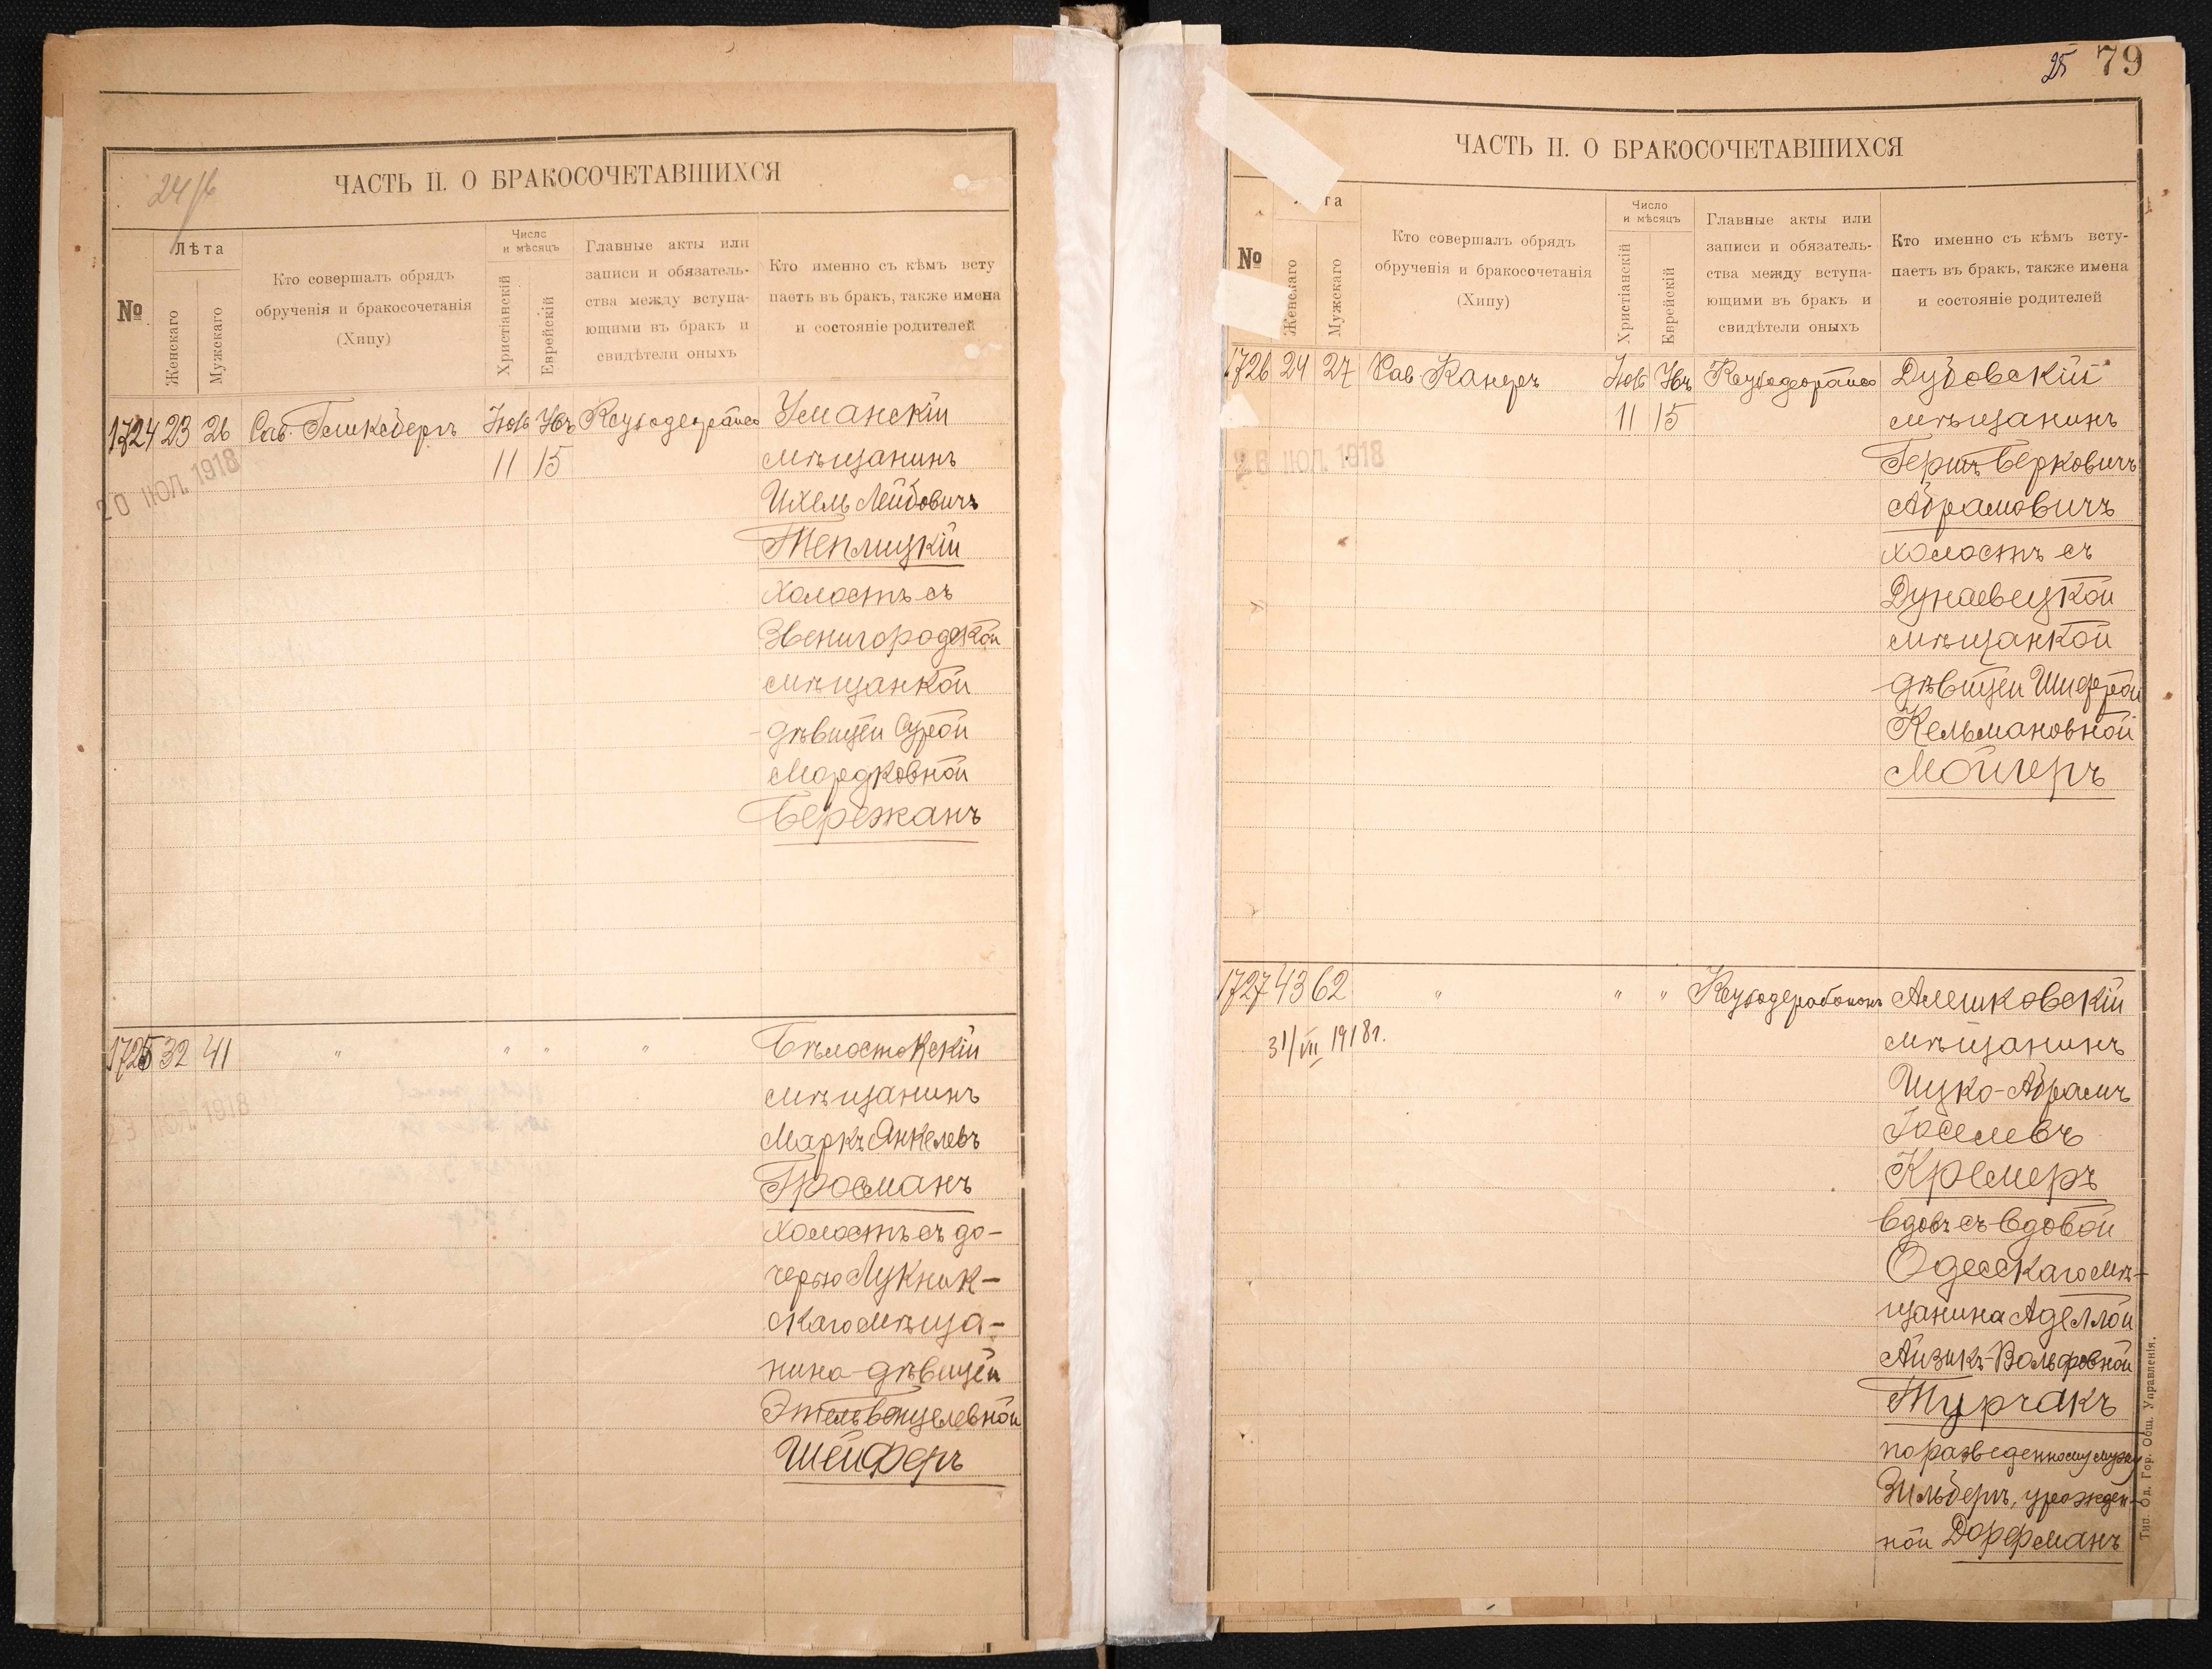 24/б
ЧАСТЬ II. О БРАКОСОЧЕТАВШИХСЯ
№
Лѣта
Женскаго
Мужскаго
Кто совершалъ обрядъ
обрученія и бракосочетанія
(Хипу)
Число
и мѣсяцъ
Христіанскій
Еврейскій
Главные акты или
записи и обязатель-
ства между вступа-
ющими въ бракъ и
свидѣтели оныхъ
Кто именно съ кѣмъ всту
паетъ въ бракъ, также имена
и состояніе родителей
1724 23 26 Рав. Гликсбергъ Нояб Хвъ Уманскій
11 15 мѣщанинъ
20 ІЮЛ. 1918
Ихель Лейбовичъ
Теплицкій
холостъ съ
Звенигородской
мѣщанкой
дѣвицей Сурой
Мордковной
Бережанъ
1725 32 41 " " " " Бѣлостокскій
мѣщанинъ
23 ІЮЛ. 1918
Маркъ Янкелевъ
Гросманъ
холостъ съ до-
черью Лукник-
скаго мѣща-
нина дѣвицей
Этель Бенцелевной
Шейферъ
25 79
ЧАСТЬ II. О БРАКОСОЧЕТАВШИХСЯ
№
та
Женскаго
Мужскаго
Кто совершалъ обрядъ
обрученія и бракосочетанія
(Хипу)
Число
и мѣсяцъ
Христіанскій
Еврейскій
Главные акты или
записи и обязатель-
ства между вступа-
ющими въ бракъ и
свидѣтели оныхъ
Кто именно съ кѣмъ всту-
паетъ въ бракъ, также имена
и состояніе родителей
1726 24 27 Рав. Канеръ Нояб Хвъ Дубовскій
11 15 мѣщанинъ
ІЮЛ. 1918
Гершъ Берковичъ
Абрамовичъ
холостъ съ
Дунаевецкой
мѣщанкой
дѣвицей Шифрой
Кельмановной
Мойгеръ
1727 43 62 " " " Алешковскій
31/VII 1918 г.
мѣщанинъ
Ицко-Абрамъ
Іоселевъ
Кремеръ
вдовъ съ вдовой
Одесскаго мѣ-
щанина Аделлой
Айзикъ-Вольфовной
Турчакъ
по разведенному мужу
Зильберъ, урожден-
ной Дорфманъ
Тип. Од. Гор. Общ. Управленія.